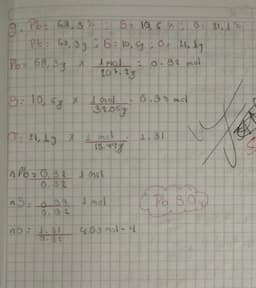 9. Pb: 68,3% ; S: 10,6% ; O: 21,1%
Pb: 68,3g ; S: 10,6g ; O: 21,1g
Pb: 68,3g x 1 mol / 207.2g = 0.32 mol
S: 10,6g x 1 mol / 32.06g = 0.33 mol
O: 21,1g x 1 mol / 15.99g = 1.31
nPb = 0,32 / 0.32 1 mol
nS: 0.33 / 0.32 1 mol
nO: 1.31 / 0.32 4.09 mol - 4
Pb SO4